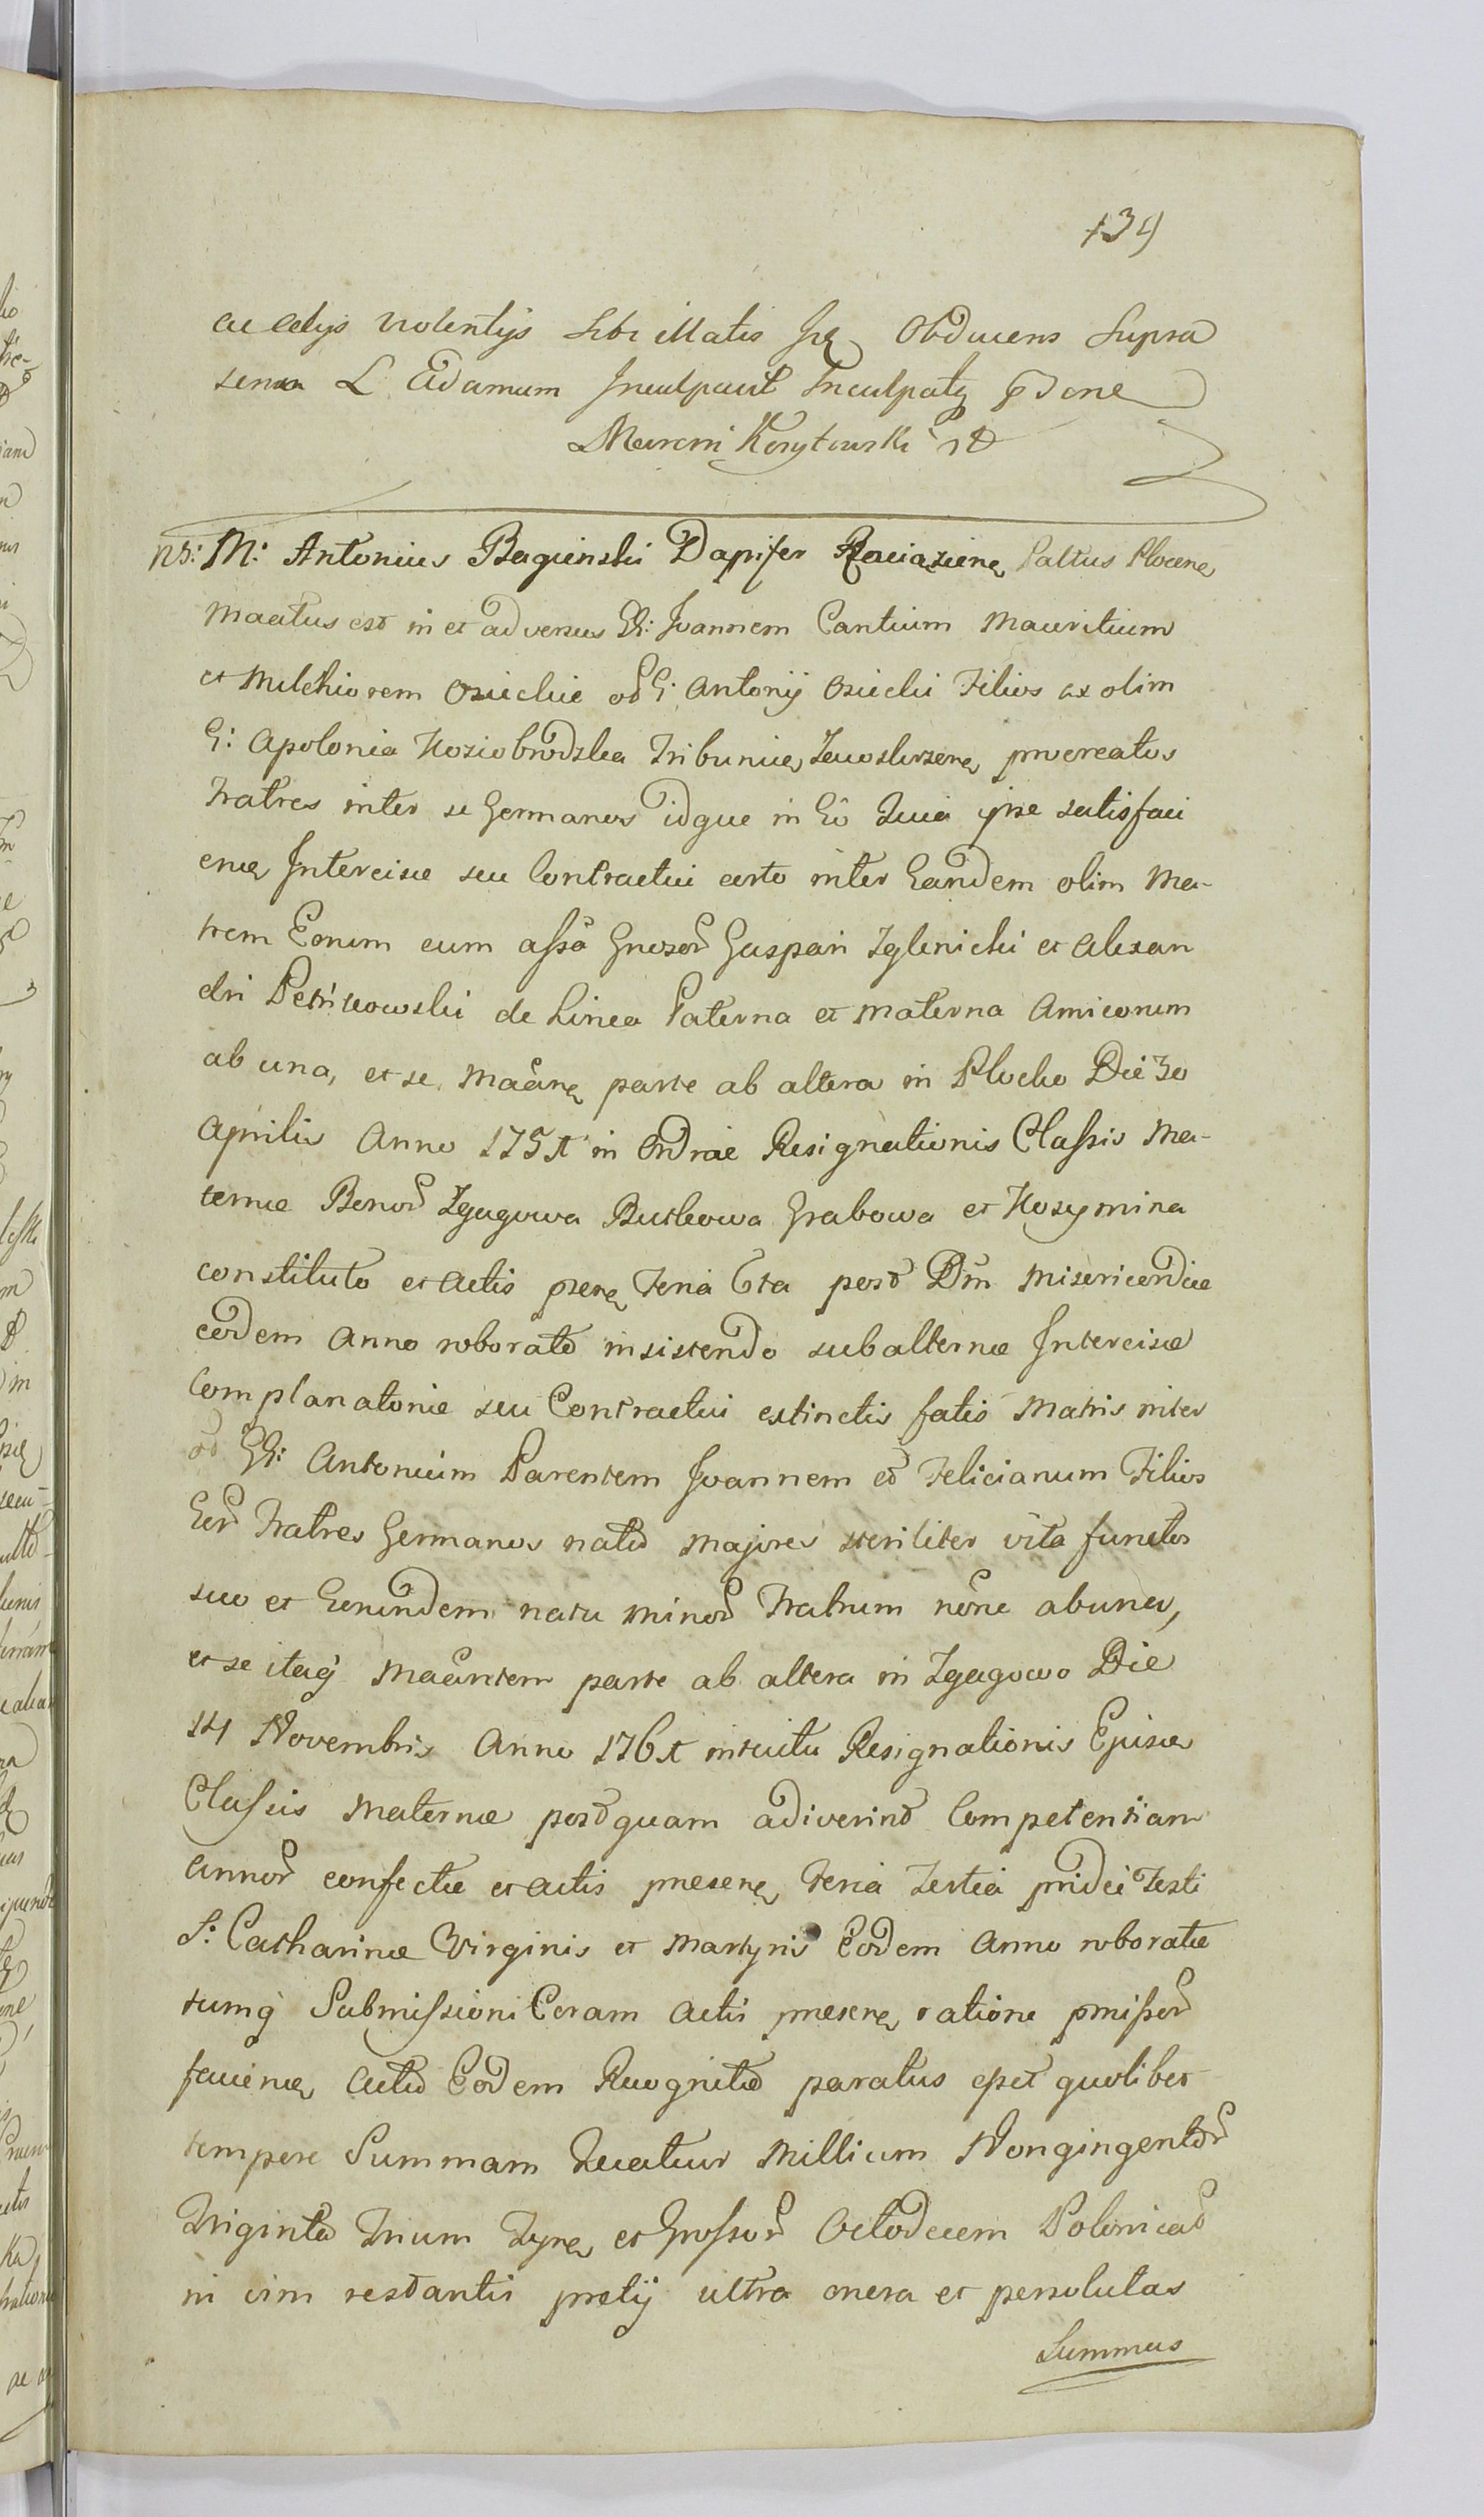 134
ac alijs violentijs sibi illatis se Obducens Supra
L Adamum Inculpavit Inculpat
Marcin Korytowski
ns: M: Antonius Bagienski Dapifer Raciaziene Palltus Plocene
Maatus est in et adversus GG: Joannem Cantium Mauritium
et Melchiorem Osieckie od G: Antonij Osiecki Filios ex olim
G: Apolonia Koziobrodzka Tribunice Zawskrzene procreatos
Fratres inter se Germanos idque in Eo Quia ipse satisfaci
ene Intercisae seu Contractui certo inter Eandem olim Ma-
trem Eorum cum assa Gnosor Gaspari Zglenicki et Alexan
dri de Linea Paterna et Materna Amicorum
ab una, et se Maane parte ab altera in Plocko Die 30
Aprilis Anno 175 in Ordine Resignationis Classis Ma-
ternae Bonor Zgagowa Grabowa et Kozymina
constituto et Actis psene Feria 6ta post Dm Misericordiae
eodem Anno roborato insistendo subalternae Intercisae
Complanatoriae seu Contractui extinctis fatis Matris inter
od GG: Antonium Parentem Joannem et Felicianum Filios
Eor Fratres Germanos natu Majores steriliter vita functos
suo et Eorundem natu minor Fratrum none ab una,
et se itaq Maantem parte ab altera in Zgagowo Die
14 Novembris Anno 176 intuitu Resignationis Ejusce
Classis Maternae postquam adiverint Competentiam
Annor confectae et Actis presene Feria Tertia pridie Festi
S: Catharinae Virginis et Martyris Eodem Anno roboratae
tumq Submissioni Coram Actis presene ratione pmissor
faciene Actu Eodem Recognitae paratus esset quolibet
tempore Summam Quatuor Millium Nongingentor
Triginta Trium Tyne et Grossor Octodecem Polonical
in vim restantis pretij ultra onera et persolutas
Summas